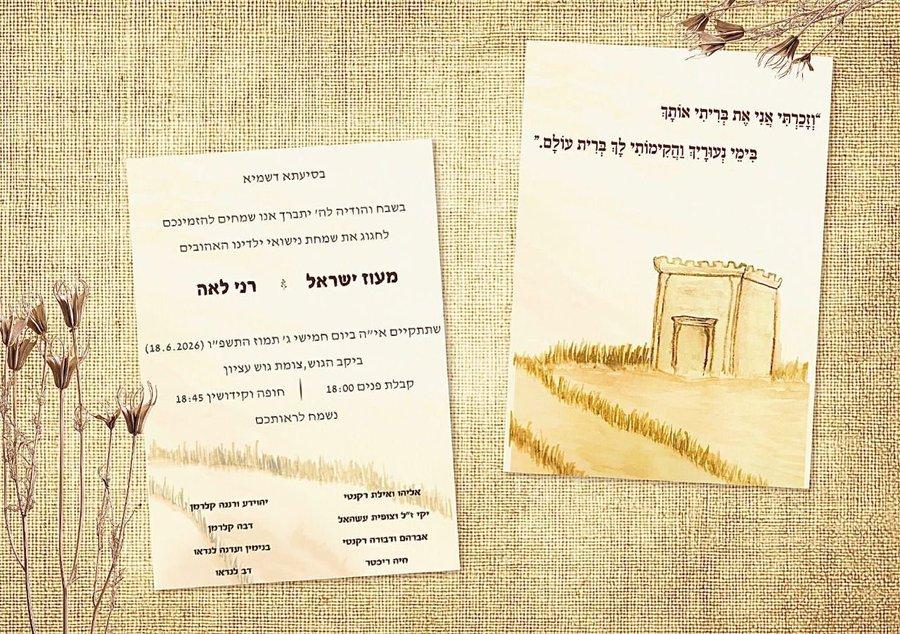 בסיעתא דשמיא
בשבח והודיה לה' יתברך אנו שמחים להזמינכם
לחגוג את שמחת נישואי ילדינו האהובים
מעוז ישראל רני לאה
שתתקיים אי"ה ביום חמישי ג' תמוז התשפ"ו (18.6.2026)
ביקב הגוש,צומת גוש עציון
קבלת פנים 18:00 | חופה וקידושין 18:45
נשמח לראותכם
אליהו ואילת רקנטי
יקי ז"ל וצופית עשהאל
אברהם ודבורה רקנטי
חיה ריכטר
יהוידע ורננה קלרמן
דבה קלרמן
בנימין ועדנה לנדאו
דב לנדאו
"וְזָכַרְתִּי אֲנִי אֶת בְּרִיתִי אוֹתָךְ
בִּימֵי נְעוּרָיִךְ וַהֲקִימוֹתִי לָךְ בְּרִית עוֹלָם."